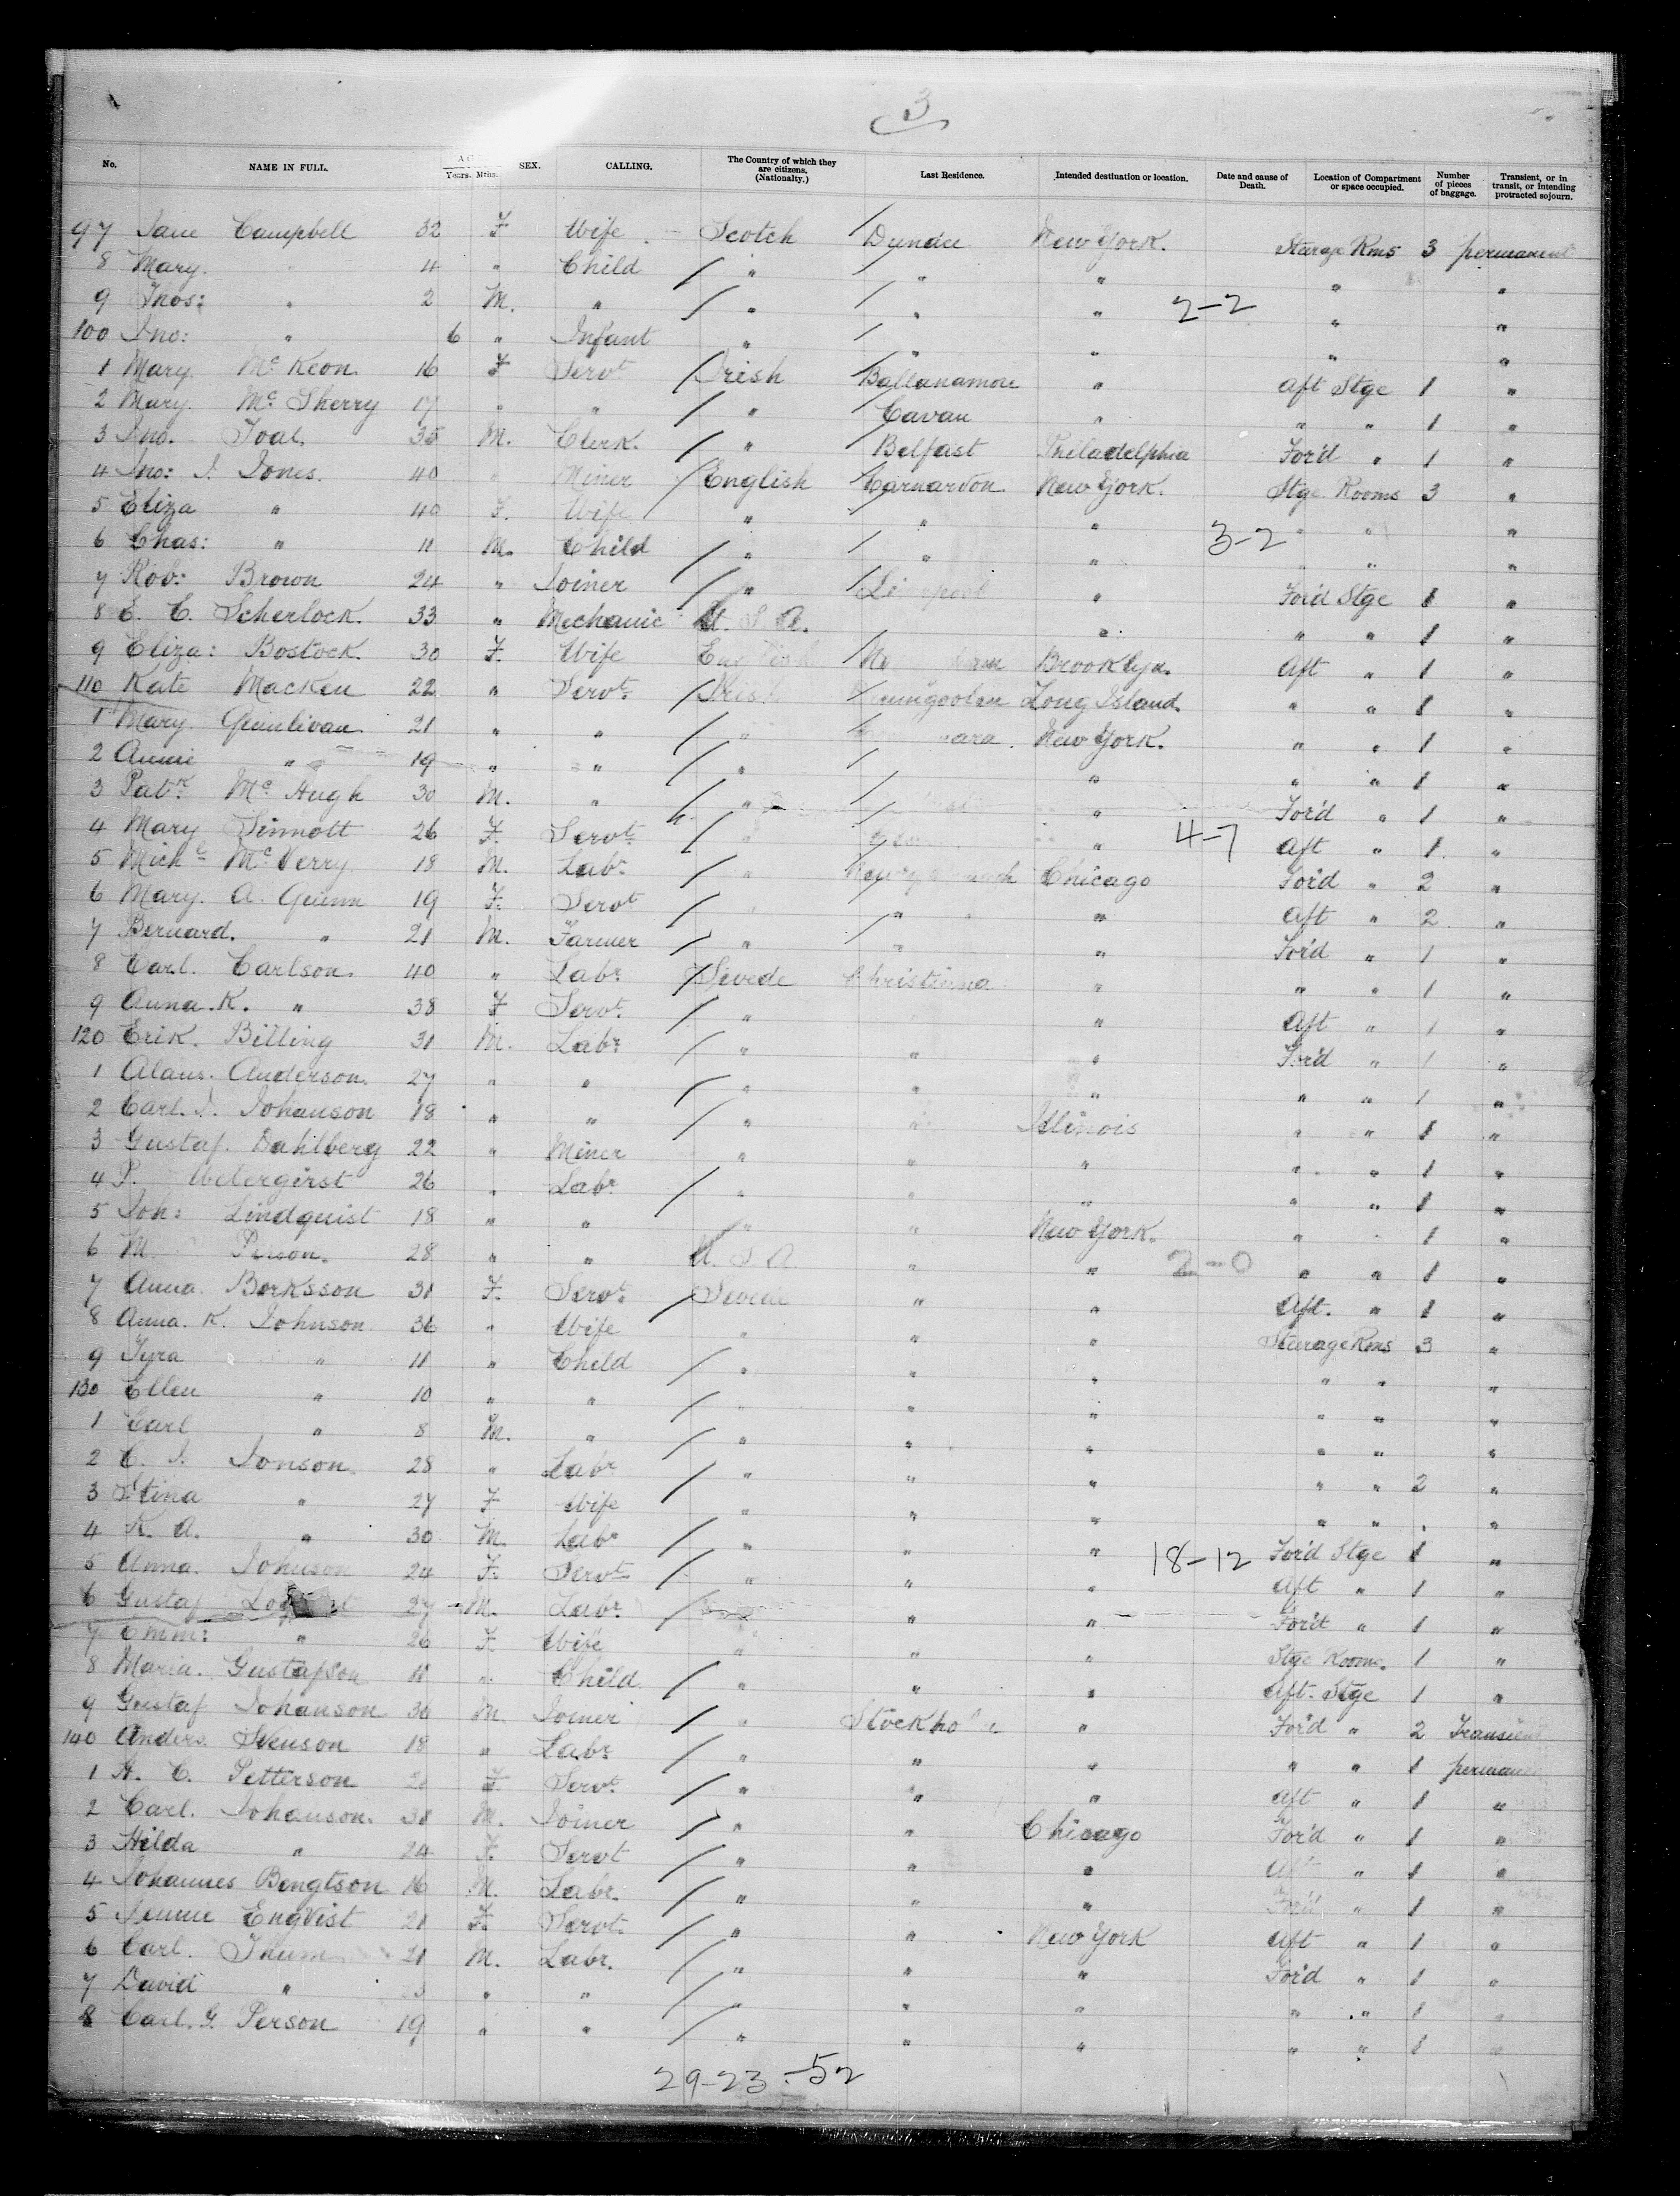 3
No. NAME IN FULL. Years. Mths. SEX. CALLING. The Country of which they are citizens. (Nationalty.) Last Residence. Intended destination or location. Date and cause of Death. Location of Compartment or space occupied. Number of pieces of baggage. Transient, or in transit, or intending protracted sojourn.
97 Jane Campbell 32 F Wife Scotch Dundee New York. Sterage Rms 3 permanent
8 Mary. " 4 " Child " " " " "
9 Thos: " 2 M. " " " " 2-2 " "
100 Jno: " 6 " Infant " " " " "
1 Mary McKeon. 16 F Servt Irish Ballanamore " Aft Stge 1 "
2 Mary. McSherry 17 " " " Cavan " " " 1 "
3 Jno. Toal. 35 M. Clerk. " Belfast Philadelphia For'd " 1 "
4 Jno: J. Jones. 40 " Miner English Carnarvon New York. Stge Rooms 3 "
5 Eliza " 40 F. Wife " " " " " "
6 Chas: " 11 M. Child " " " 3-2 " " "
7 Rob: Brown 24 " Joiner " " For'd Stge 1 "
8 E. C. Scherlock. 33 " Mechanic U. S. A. " " " 1 "
9 Eliza: Bostock. 30 F. Wife English Brooklyn. Aft " 1 "
110 Kate Macken 22 " Servt. Irish Long Island. " " 1 "
1 Mary Quinlivan. 21 " " " New York. " " 1 "
2 Annie " 19 " " " " " " 1 "
3 Patk McHugh 30 M. " " " For'd " 1 "
4 Mary Sinnott 26 F. Servt. " " 4-7 Aft " 1 "
5 Michl McVerry 18 M. Labr " Chicago For'd " 2 "
6 Mary. A. Quinn 19 F. Servt " " " Aft " 2 "
7 Bernard. " 21 M. Farmer " " " For'd " 1 "
8 Carl. Carlson. 40 " Labr. Swede Christiania " " " 1 "
9 Anna. K. " 38 F Servt. " " Aft " 1 "
120 Erik. Billing 31 M. Labr. " " " For'd " 1 "
1 Anderson. 27 " " " " " " " 1 "
2 Carl. J. Johanson 18 " " " " Illinois " " 1 "
3 Gustaf. Dahlberg 22 " Miner " " " " " 1 "
4 P. 26 " Labr " " " " " 1 "
5 Joh: Lindquist 18 " " " " New York. " " 1 "
6 M. Person. 28 " " U. S. A " " 2-0 " " 1 "
7 Anna. Borksson 31 F. Servt. Swede " " Aft. " 1 "
8 Anna. K. Johnson 36 " Wife " " " Sterage Rms 3 "
9 Tyra " 11 " Child " " " " " "
130 Ellen " 10 " " " " " " " "
1 Carl " 8 M. " " " " " " "
2 C. J. Jonson 28 " Labr " " " " " 2 "
3 Stina " 27 F Wife " " " " " "
4 K. A. " 30 M. Labr " " " 18-12 For'd Stge 1 "
5 Anna. Johnson 24 F. Servt " " " Aft " 1 "
6 Gustaf 27 M. Labr. " " For'd " 1 "
7 Emm: " 26 F. Wife " " " Stge Rooms. 1 "
8 Maria. Gustafson 11 " Child " " " Aft. Stge 1 "
9 Gustaf Johanson 30 M. Joiner " Stockholm " For'd " 2 Transient
140 Anders. Swenson 18 " Labr. " " " " " 1 permanent
1 C. Petterson F. Servt. " " " Aft " 1 "
2 Carl. Johanson. 38 M. Joiner " " Chicago For'd " 1 "
3 Hilda " 24 F. Servt " " " Aft " 1 "
4 Johannes Bengtson 16 M. Labr. " " " For'd " 1 "
5 Engvist 21 F. Servt. " " New York Aft " 1 "
6 Carl. 21 M. Labr. " " " For'd " 1 "
7 David " " " " " " " " 1 "
8 Carl. G. Person 19 " " " " " " " 1 "
29-23-52